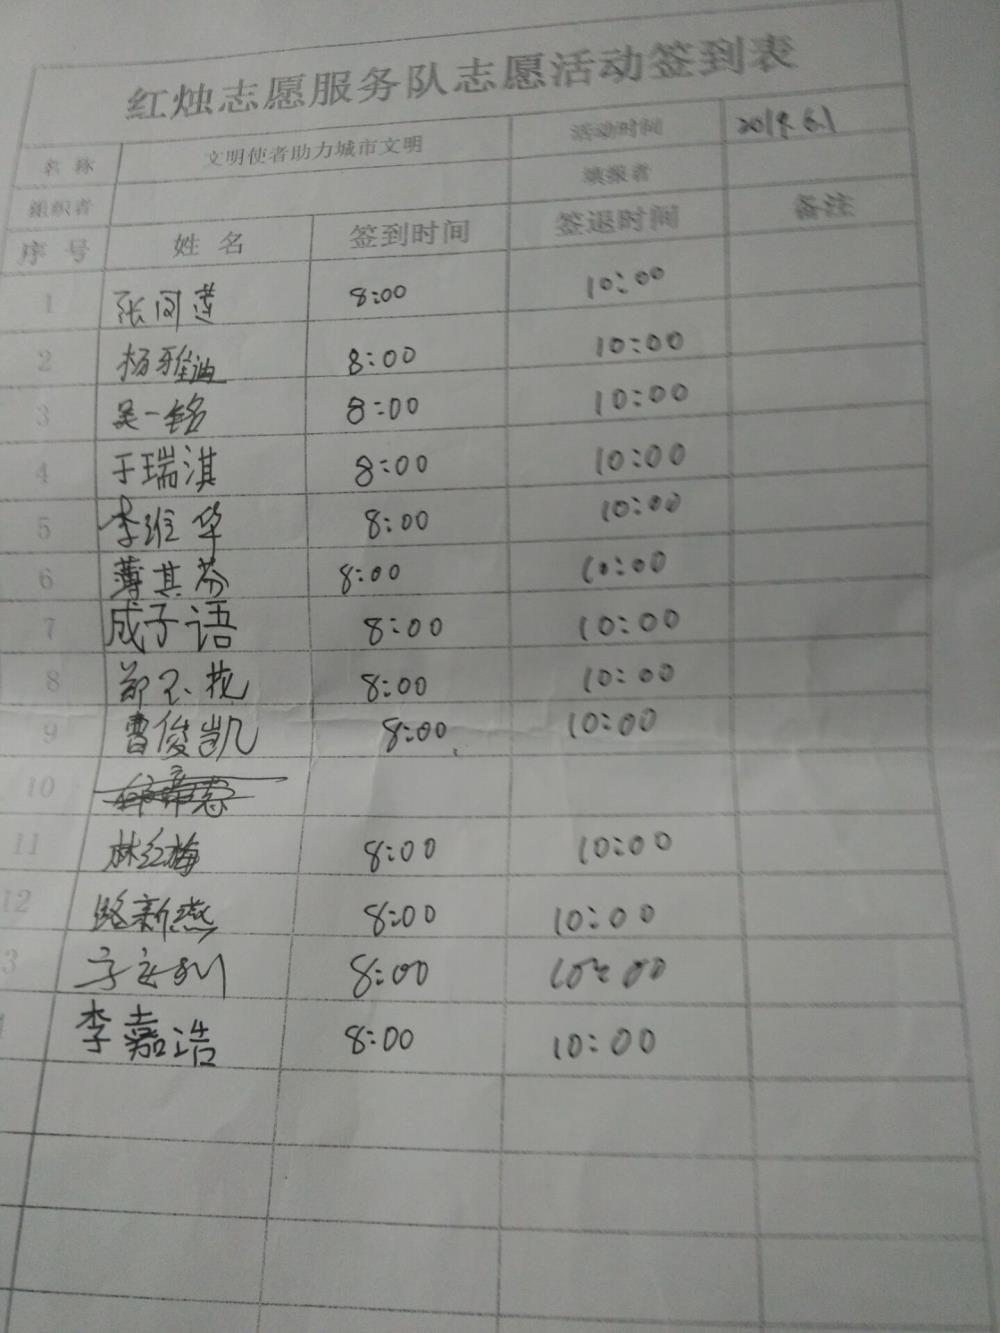 红烛志愿服务队志愿活动签到表
名 称 文明使者助力城市文明 活动时间 2019.6.1
组织者 填报者
序 号 姓 名 签到时间 签退时间 备注
1 张同莲 8:00 10:00
2 杨雅迪 8:00 10:00
3 吴一铭 8:00 10:00
4 于瑞淇 8:00 10:00
5 李维华 8:00 10:00
6 薄其芬 8:00 10:00
7 成子语 8:00 10:00
8 郑 8:00 10:00
9 曹俊凯 8:00 10:00
10
11 林红梅 8:00 10:00
12 路新燕 8:00 10:00
3 8:00 10:00
李嘉浩 8:00 10:00